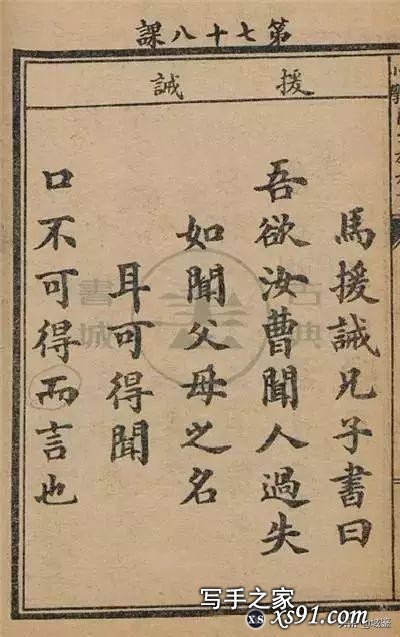 第七十八課
援誡
馬援誡兄子書曰
吾欲汝曹聞人過失
如聞父母之名
耳可得聞
口不可得而言也
古典
書城
写手之家
xs91.com